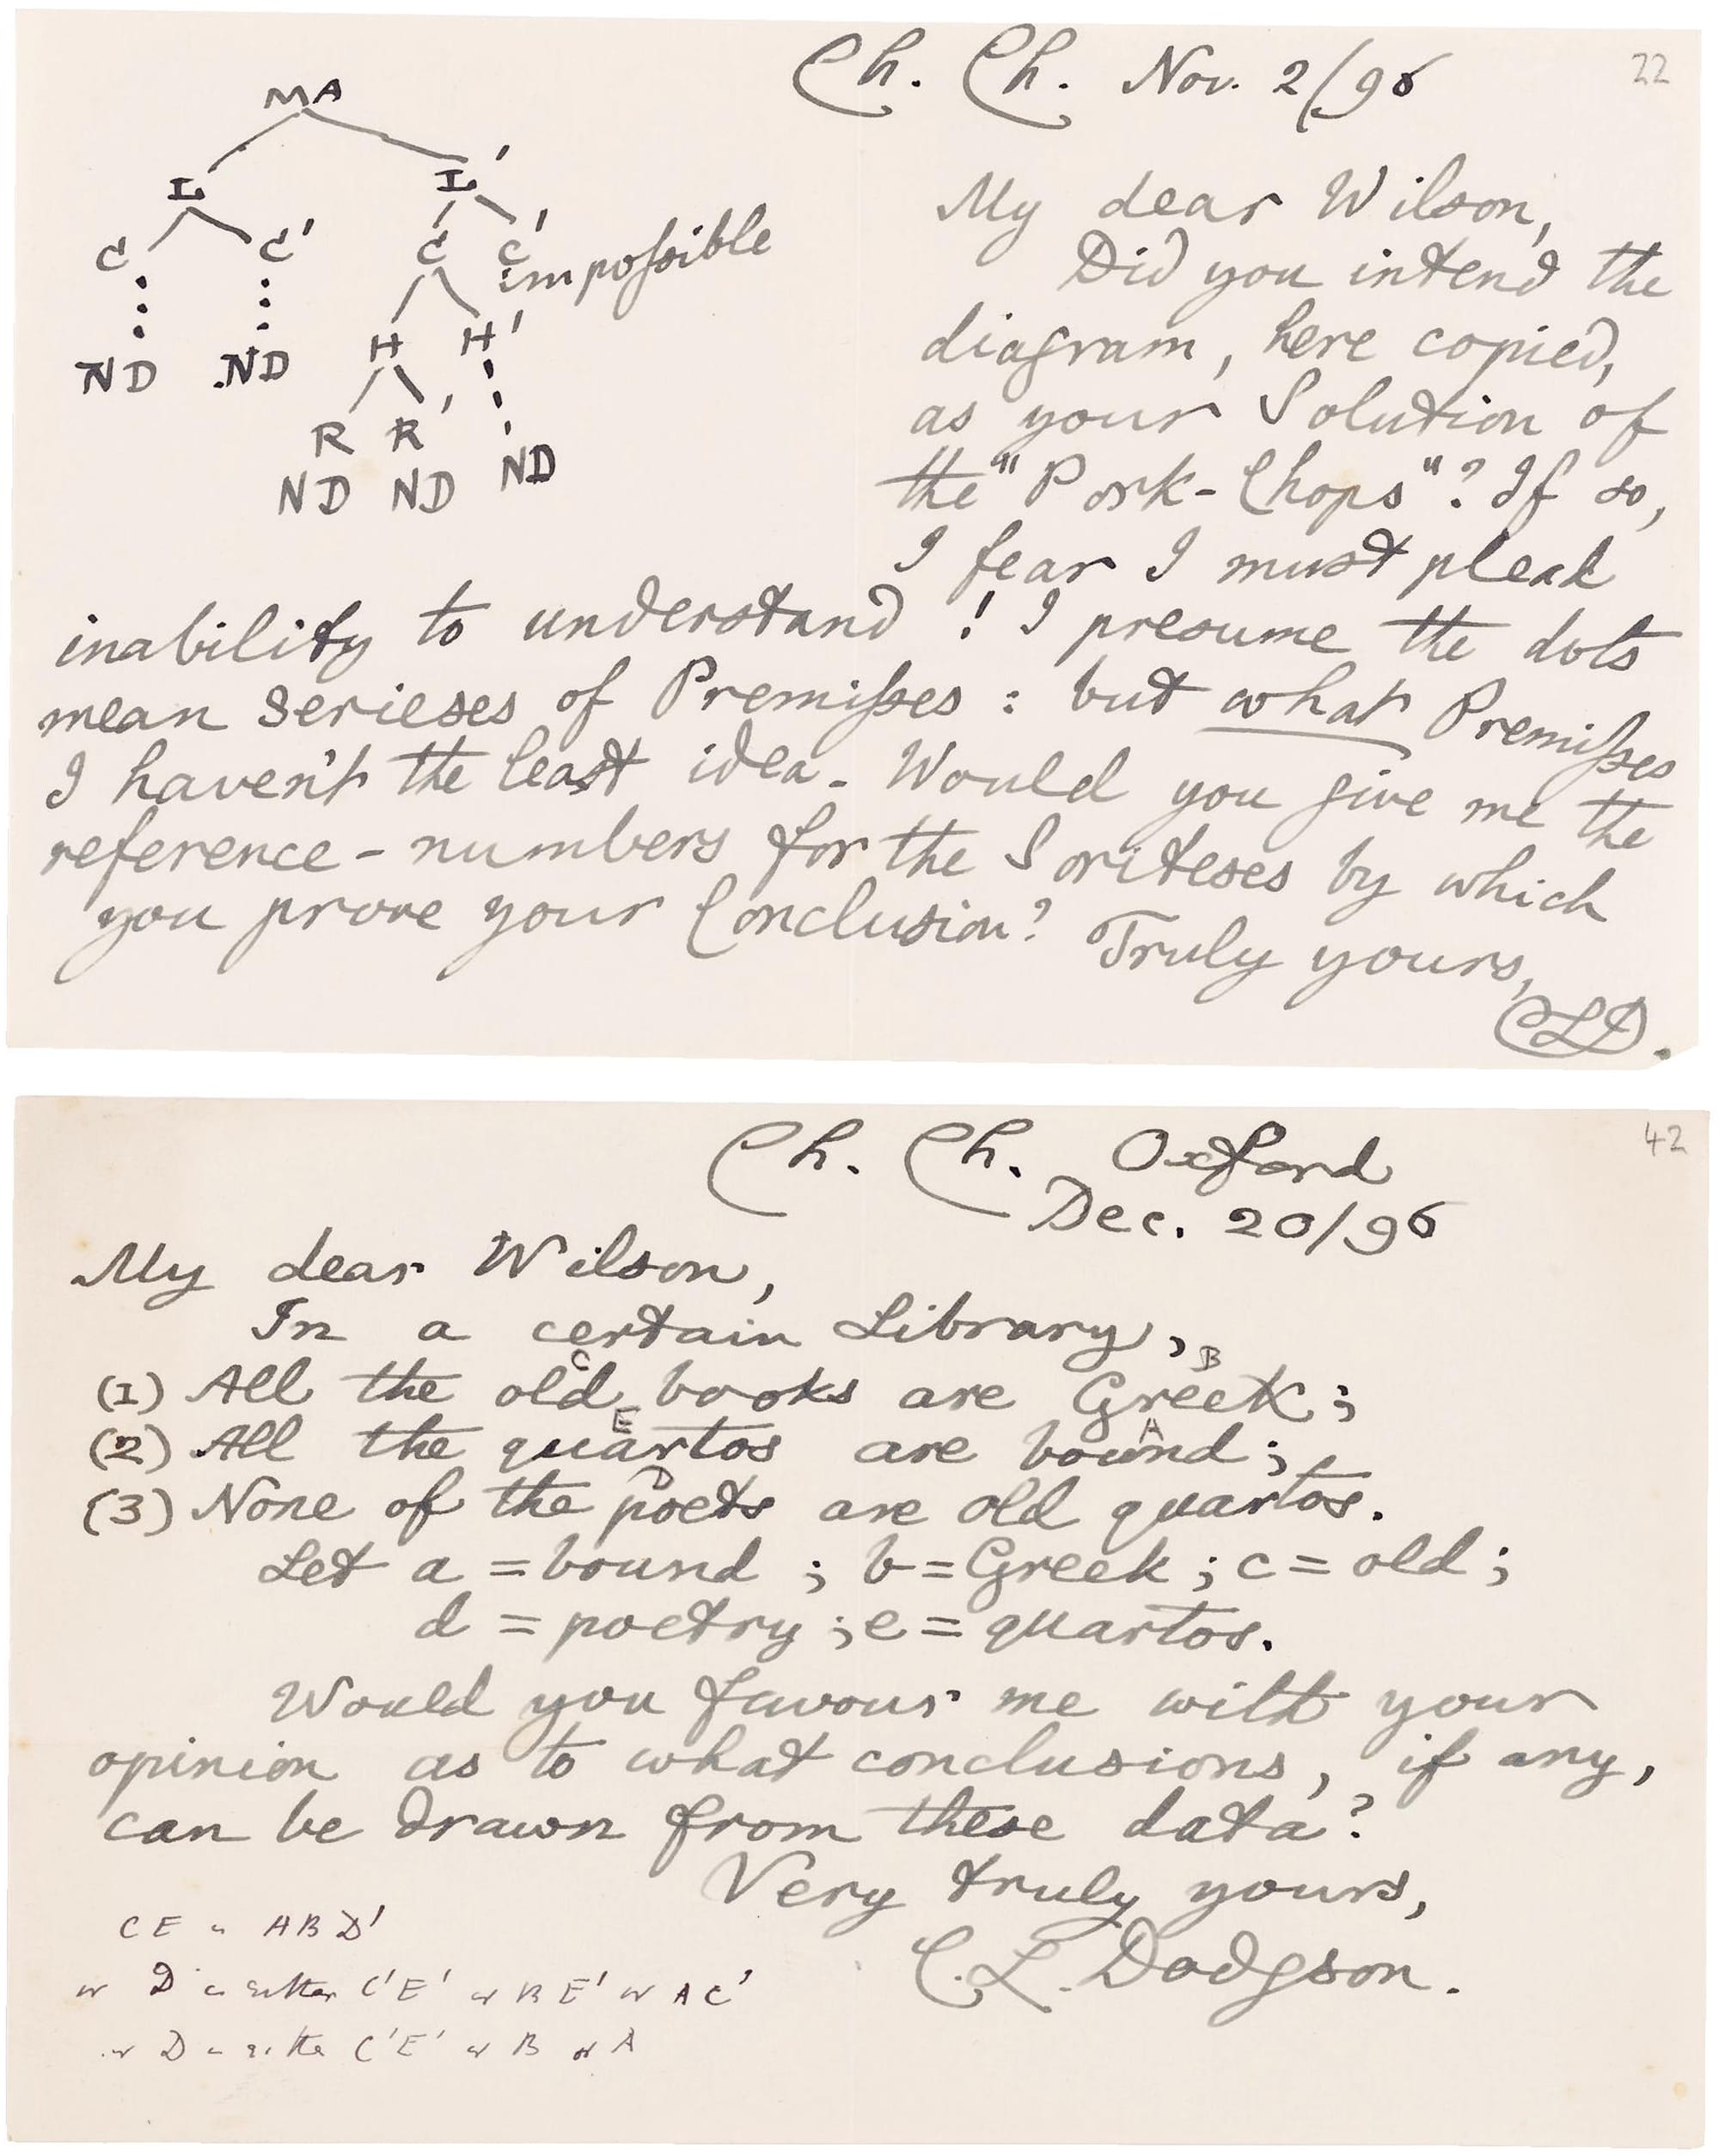 Ch. Ch. Nov. 2/96
22
MA
L L'
C C' C C'
impossible
H H'
ND ND
R R'
ND ND ND
My dear Wilson,
Did you intend the
diagram, here copied,
as your Solution of
the "Pork-Chops"? If so,
I fear I must plead
inability to understand! I presume the dots
mean serieses of Premisses: but what Premisses
I haven't the least idea. Would you give me the
reference-numbers for the Soriteses by which
you prove your Conclusion? Truly yours,
CLD.
42
Ch. Ch. Oxford
Dec. 20/96
My dear Wilson,
In a certain Library,
C B
(1) All the old books are Greek;
E A
(2) All the quartos are bound;
D
(3) None of the poets are old quartos.
Let a = bound; b = Greek; c = old;
d = poetry; e = quartos.
Would you favour me with your
opinion as to what conclusions, if any,
can be drawn from these data?
Very truly yours,
C. L. Dodgson.
CE ABD'
or D is either C'E' or BE' or AC'
or D is either C'E' or B or A